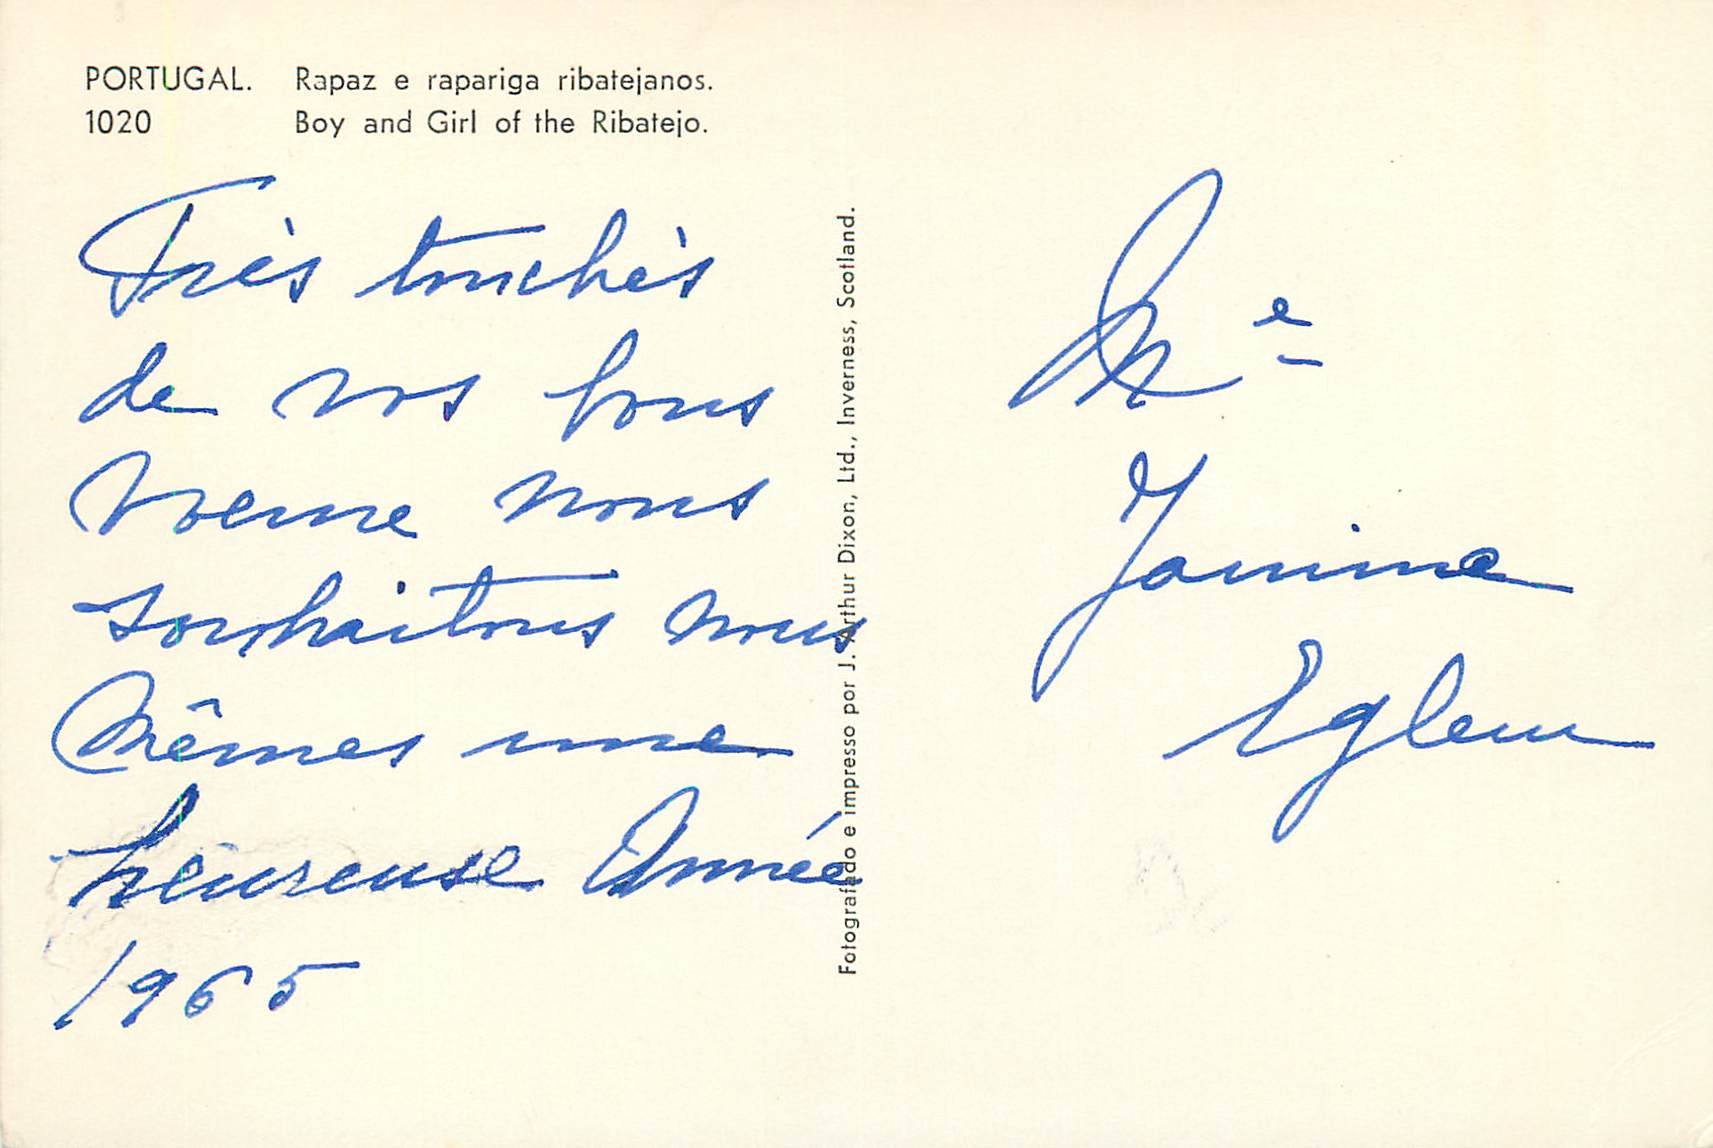 PORTUGAL. Rapaz e rapariga ribatejanos.
1020 Boy and Girl of the Ribatejo.
Très touchés
de vos bons
voeux nous
souhaitons nous
mêmes une
heureuse Année
1965
Fotografado e impresso por J. Arthur Dixon, Ltd., Inverness, Scotland.
Me
Janine